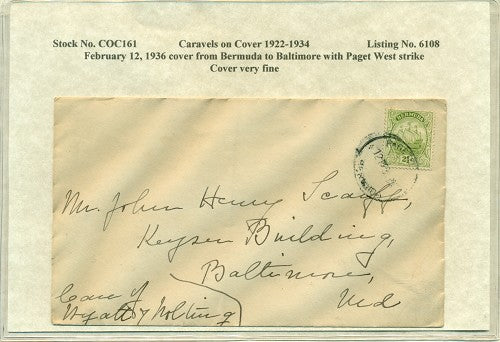 Stock No. COC161 Caravels on Cover 1922-1934 Listing No. 6108
February 12, 1936 cover from Bermuda to Baltimore with Paget West strike
Cover very fine
BERMUDA
Mr. John Henry Scarff,
Keyser Building,
Baltimore,
Md
Care of
Wyatt & Nolting